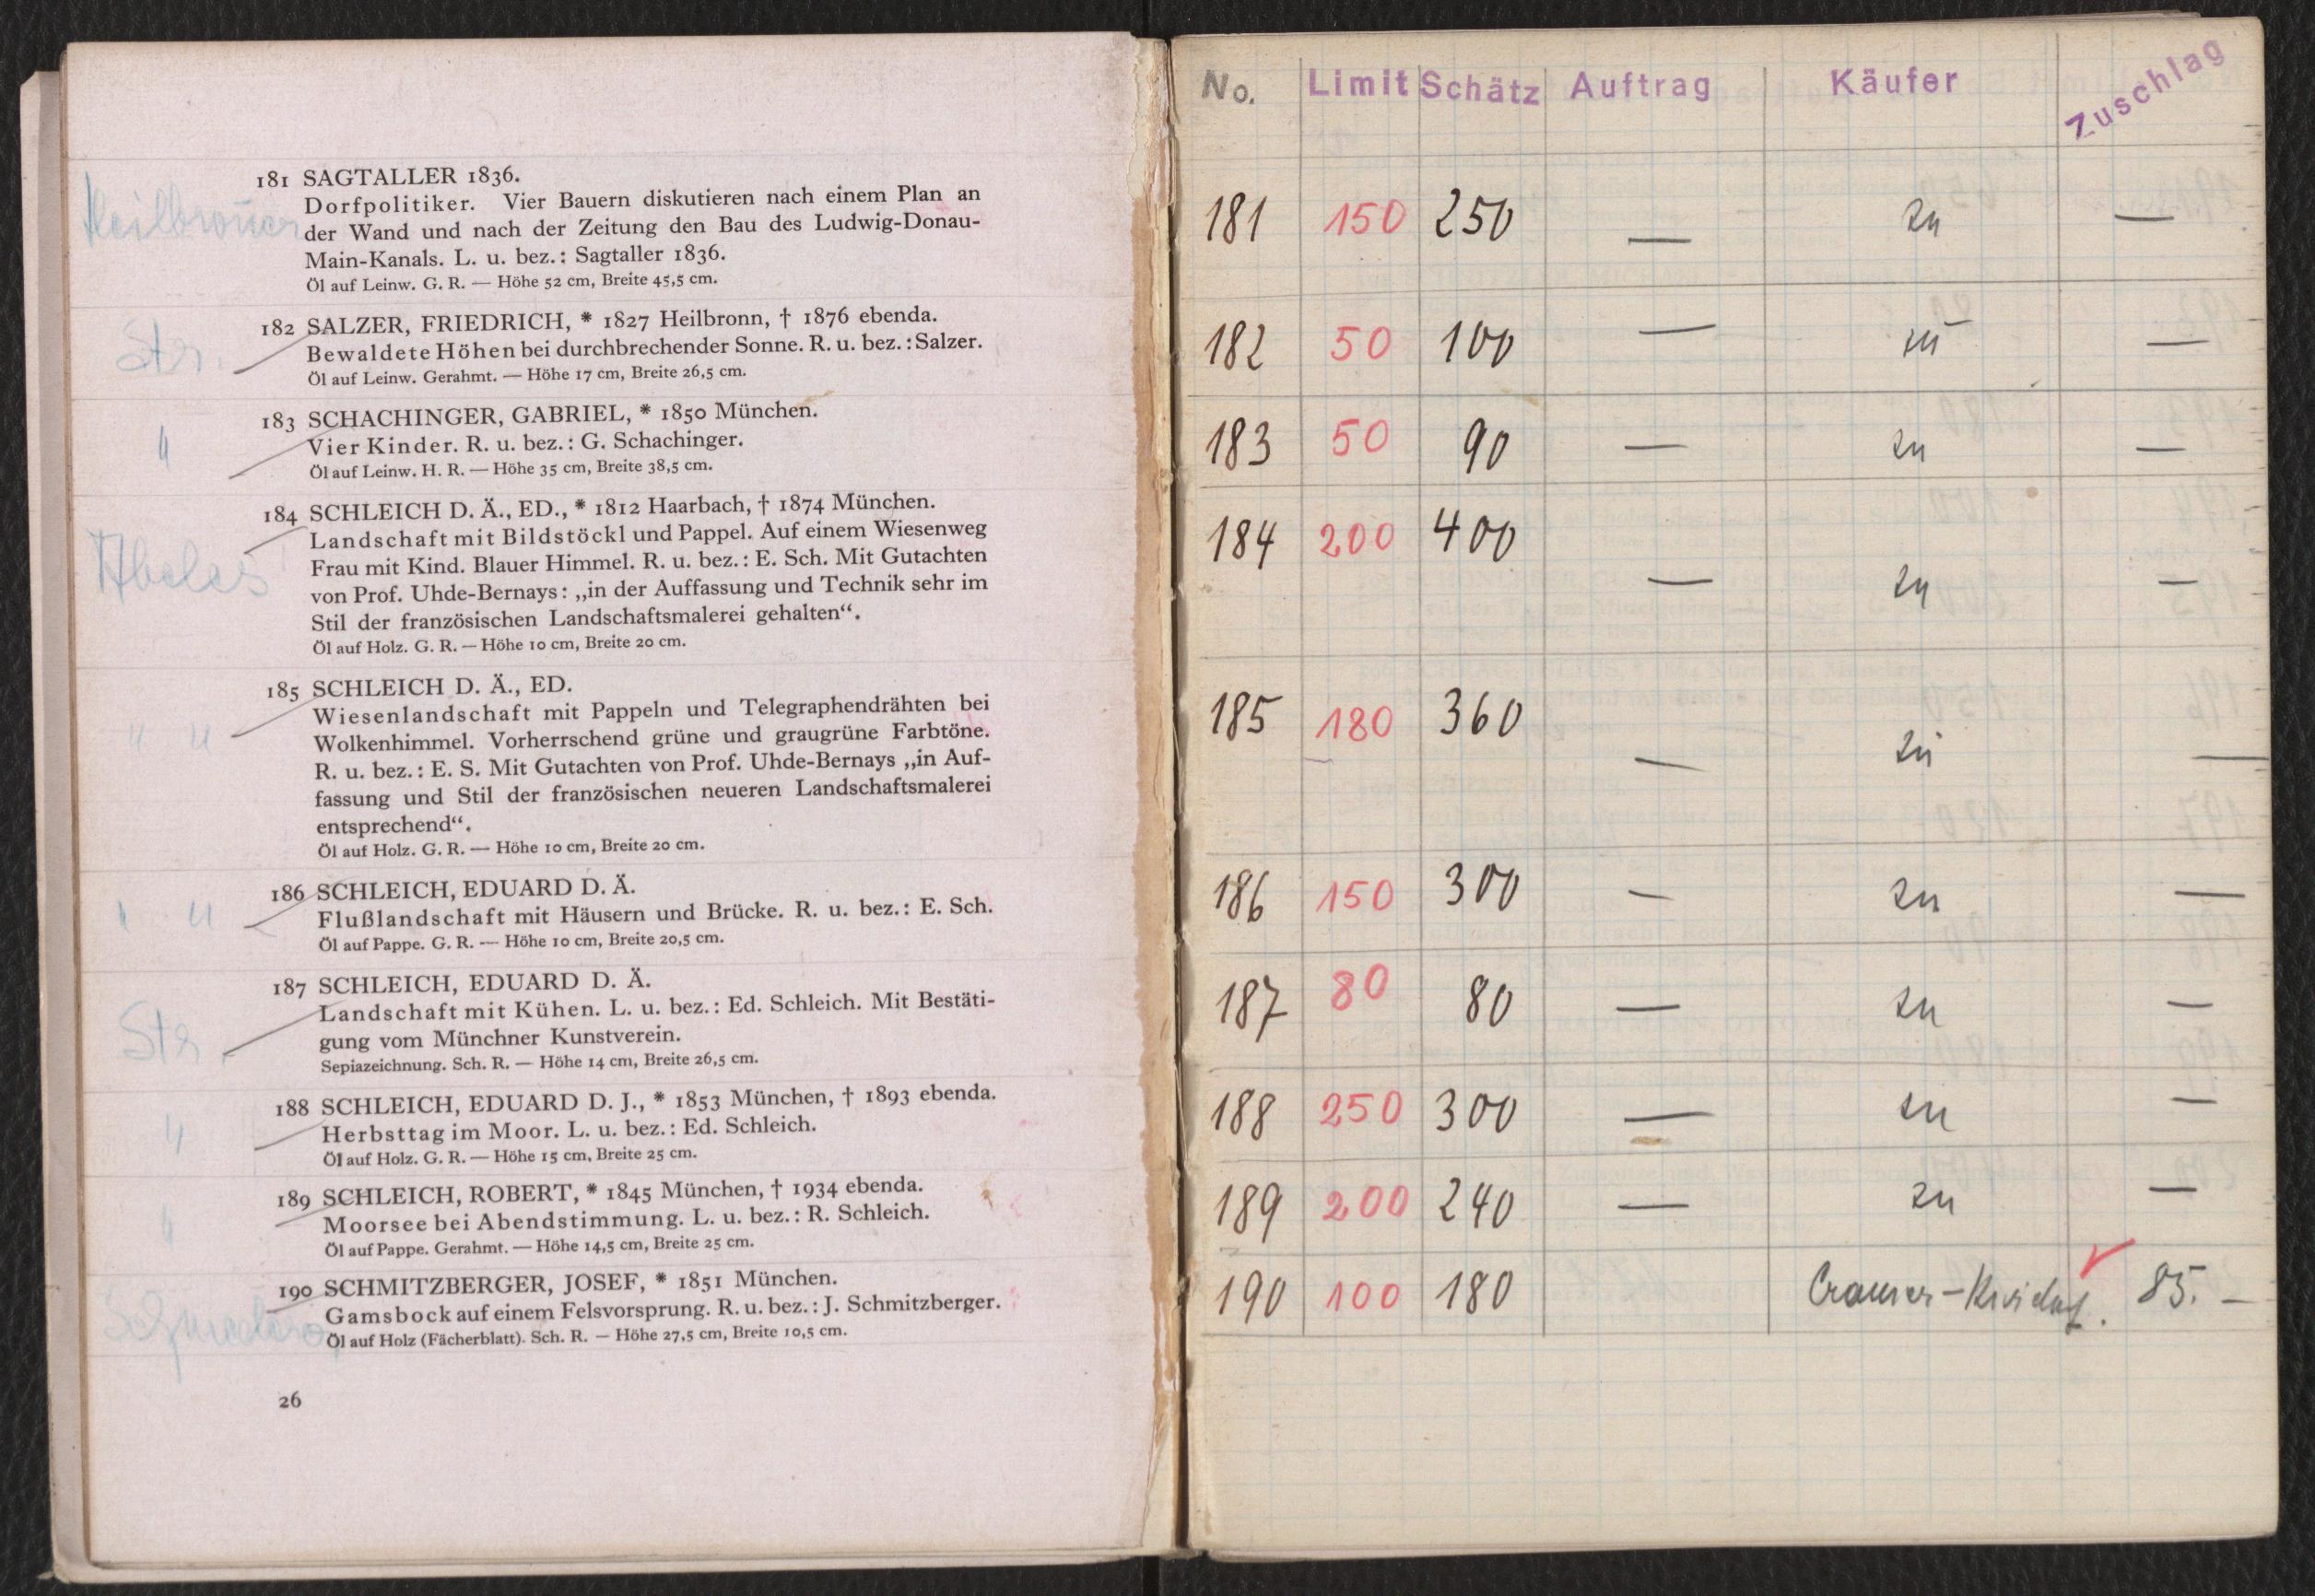 181 SAGTALLER 1836.
Dorfpolitiker. Vier Bauern diskutieren nach einem Plan an
der Wand und nach der Zeitung den Bau des Ludwig-Donau-
Main-Kanals. L. u. bez.: Sagtaller 1836.
Öl auf Leinw. G. R. — Höhe 52 cm, Breite 45,5 cm.
Heilbronner
182 SALZER, FRIEDRICH, * 1827 Heilbronn, † 1876 ebenda.
Bewaldete Höhen bei durchbrechender Sonne. R. u. bez.: Salzer.
Öl auf Leinw. Gerahmt. — Höhe 17 cm, Breite 26,5 cm.
Str.
183 SCHACHINGER, GABRIEL, * 1850 München.
Vier Kinder. R. u. bez.: G. Schachinger.
Öl auf Leinw. H. R. — Höhe 35 cm, Breite 38,5 cm.
"
184 SCHLEICH D. Ä., ED., * 1812 Haarbach, † 1874 München.
Landschaft mit Bildstöckl und Pappel. Auf einem Wiesenweg
Frau mit Kind. Blauer Himmel. R. u. bez.: E. Sch. Mit Gutachten
von Prof. Uhde-Bernays: „in der Auffassung und Technik sehr im
Stil der französischen Landschaftsmalerei gehalten“.
Öl auf Holz. G. R. — Höhe 10 cm, Breite 20 cm.
Abeles
185 SCHLEICH D. Ä., ED.
Wiesenlandschaft mit Pappeln und Telegraphendrähten bei
Wolkenhimmel. Vorherrschend grüne und graugrüne Farbtöne.
R. u. bez.: E. S. Mit Gutachten von Prof. Uhde-Bernays „in Auf-
fassung und Stil der französischen neueren Landschaftsmalerei
entsprechend“.
Öl auf Holz. G. R. — Höhe 10 cm, Breite 20 cm.
" "
186 SCHLEICH, EDUARD D. Ä.
Flußlandschaft mit Häusern und Brücke. R. u. bez.: E. Sch.
Öl auf Pappe. G. R. — Höhe 10 cm, Breite 20,5 cm.
" "
187 SCHLEICH, EDUARD D. Ä.
Landschaft mit Kühen. L. u. bez.: Ed. Schleich. Mit Bestäti-
gung vom Münchner Kunstverein.
Sepiazeichnung. Sch. R. — Höhe 14 cm, Breite 26,5 cm.
Str.
188 SCHLEICH, EDUARD D. J., * 1853 München, † 1893 ebenda.
Herbsttag im Moor. L. u. bez.: Ed. Schleich.
Öl auf Holz. G. R. — Höhe 15 cm, Breite 25 cm.
"
189 SCHLEICH, ROBERT, * 1845 München, † 1934 ebenda.
Moorsee bei Abendstimmung. L. u. bez.: R. Schleich.
Öl auf Pappe. Gerahmt. — Höhe 14,5 cm, Breite 25 cm.
"
190 SCHMITZBERGER, JOSEF, * 1851 München.
Gamsbock auf einem Felsvorsprung. R. u. bez.: J. Schmitzberger.
Öl auf Holz (Fächerblatt). Sch. R. — Höhe 27,5 cm, Breite 10,5 cm.
26
No. Limit Schätz Auftrag Käufer Zuschlag
181 150 250 — zu —
182 50 100 — zu —
183 50 90 — zu —
184 200 400 — zu —
185 180 360 — zu —
186 150 300 — zu —
187 80 80 — zu —
188 250 300 — zu —
189 200 240 — zu —
190 100 180 85.—